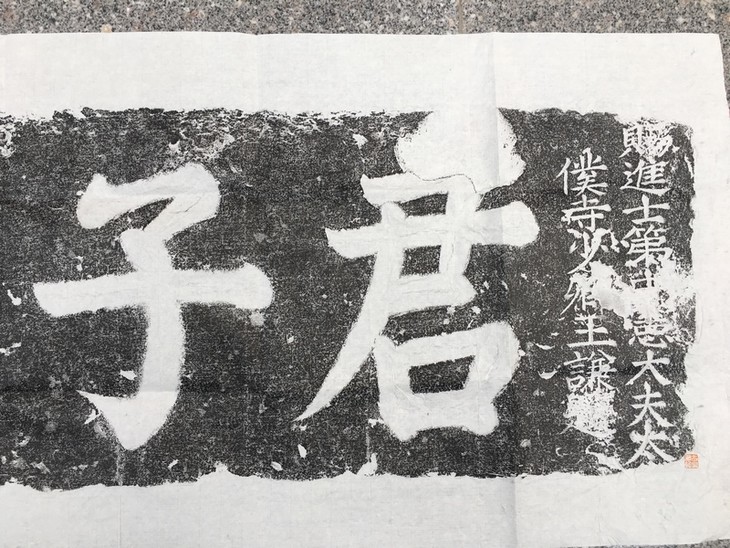 賜進士第中憲大夫太
僕寺少卿王謙
君子